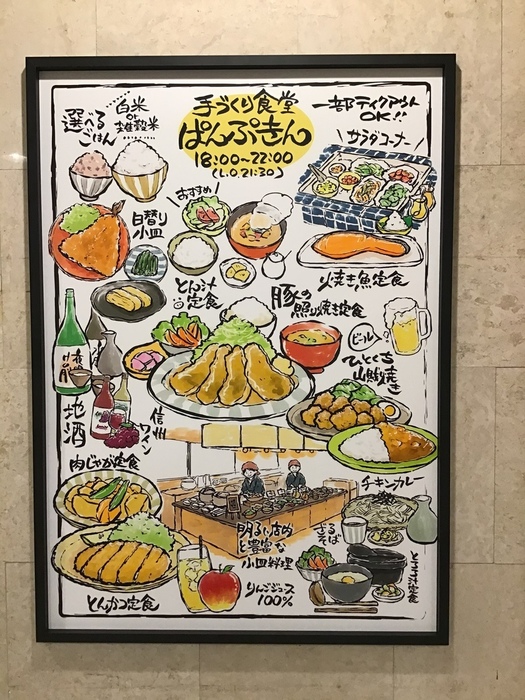 手づくり食堂
ぱんぷきん
18:00~22:00
(L.O.21:30)
選べる
ごはん
白米
or
雑穀米
一部テイクアウト
OK!!
サラダコーナー
おすすめ
日替り
小皿
とん汁
定食
焼き魚定食
豚の
照り焼き定食
ビール
ひとくち
山賊焼き
地酒
信州
ワイン
肉じゃが定食
チキンカレー
明るい店内
と豊富な
小皿料理
ざる
そば
とろろ汁定食
とんかつ定食
りんごジュース
100%